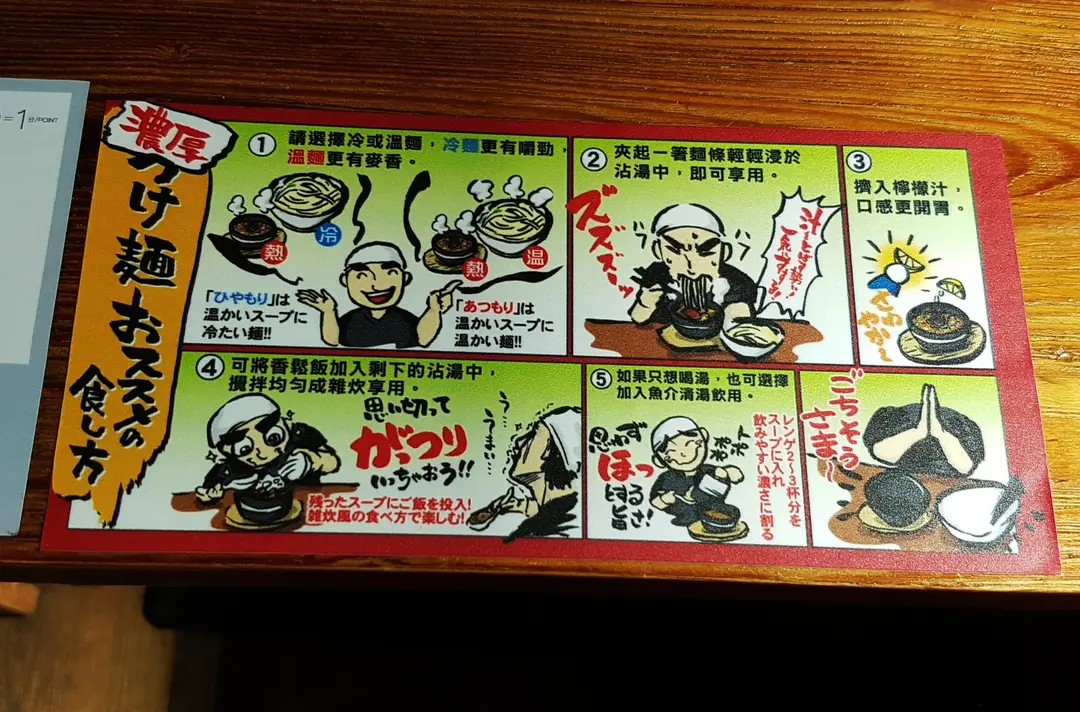 =1分/POINT
濃厚
つけ麺おススメの
食し方
① 請選擇冷或溫麵，冷麵更有嚼勁，
溫麵更有麥香。
熱
冷
熱
温
「ひやもり」は
温かいスープに
冷たい麺!!
「あつもり」は
温かいスープに
温かい麺!!
② 夾起一箸麵條輕輕浸於
沾湯中，即可享用。
ズズズーッ
③
擠入檸檬汁，
口感更開胃。
さわ
やか〜
④ 可將香鬆飯加入剩下的沾湯中，
攪拌均勻成雜炊享用。
思い切って
がっつり
いちゃおう!!
残ったスープにご飯を投入!
雑炊風の食べ方で楽しむ!
う…
うまい…
⑤ 如果只想喝湯，也可選擇
加入魚介清湯飲用。
思わず
ほっ
とする
旨さ!
レンゲ2〜3杯分を
スープに入れ
飲みやすい濃さに割る
ごちそう
さま〜